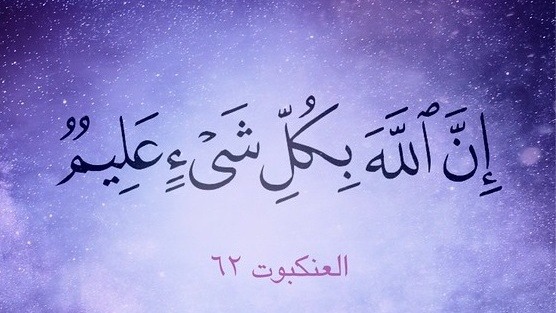 إِنَّ ٱللَّهَ بِكُلِّ شَىْءٍ عَلِيمٌ
العنكبوت ٦٢